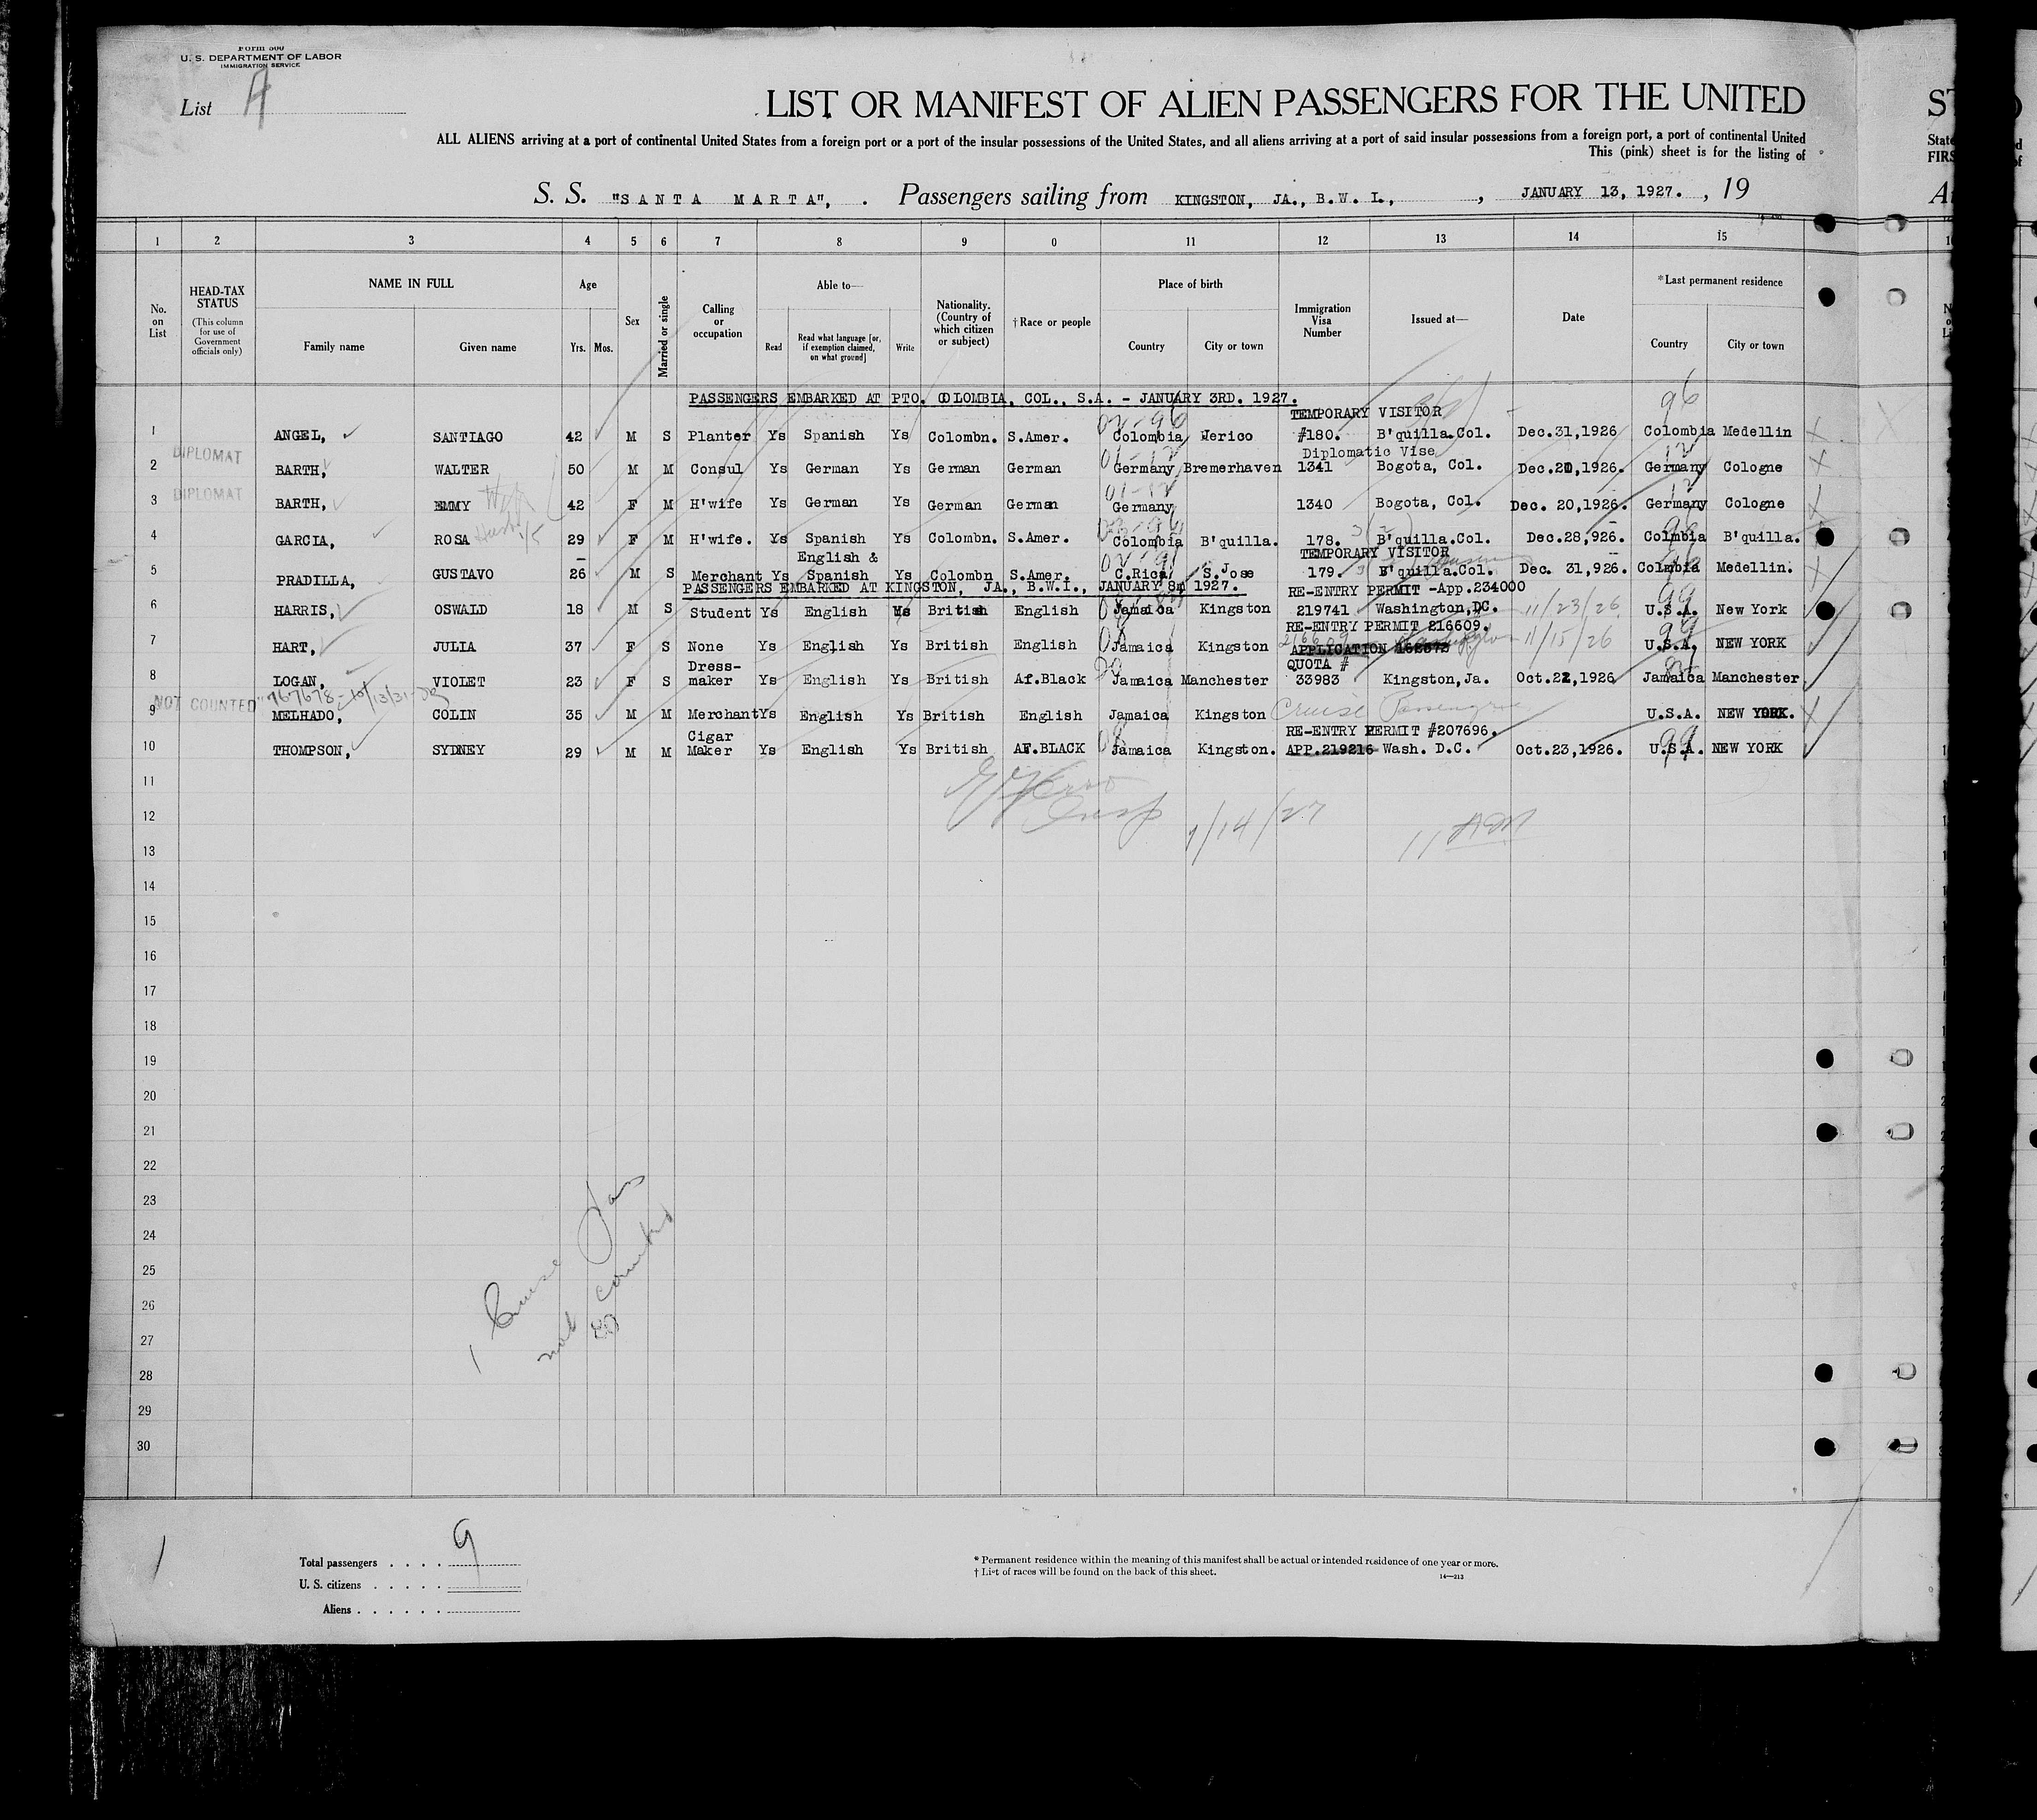 Form 500
U. S. DEPARTMENT OF LABOR
IMMIGRATION SERVICE
List A
LIST OR MANIFEST OF ALIEN PASSENGERS FOR THE UNITED
ALL ALIENS arriving at a port of continental United States from a foreign port or a port of the insular possessions of the United States, and all aliens arriving at a port of said insular possessions from a foreign port, a port of continental United
This (pink) sheet is for the listing of
S. S. "SANTA MARTA", Passengers sailing from KINGSTON, JA., B.W.I., , JANUARY 13, 1927. , 19
1 2 3 4 5 6 7 8 9 0 11 12 13 14 15
No. on List
HEAD-TAX STATUS (This column for use of Government officials only)
NAME IN FULL
Family name Given name
Age
Yrs. Mos.
Sex
Married or single
Calling or occupation
Able to—
Read Read what language [or, if exemption claimed, on what ground] Write
Nationality. (Country of which citizen or subject)
† Race or people
Place of birth
Country City or town
Immigration Visa Number
Issued at—
Date
* Last permanent residence
Country City or town
PASSENGERS EMBARKED AT PTO. COLOMBIA, COL., S.A. - JANUARY 3RD. 1927.
TEMPORARY VISITOR 96
02-96
1 ANGEL, SANTIAGO 42 M S Planter Ys Spanish Ys Colombn. S.Amer. Colombia Jerico #180. B'quilla.Col. Dec.31,1926 Colombia Medellin
DIPLOMAT 01-12 Diplomatic Vise 12
2 BARTH, WALTER 50 M M Consul Ys German Ys German German Germany Bremerhaven 1341 Bogota, Col. Dec.20,1926. Germany Cologne
DIPLOMAT Wife 01-12 12
3 BARTH, EMMY 42 F M H'wife Ys German Ys German German Germany 1340 Bogota, Col. Dec. 20,1926. Germany Cologne
4 GARCIA, ROSA 29 F M H'wife. Ys Spanish Ys Colombn. S.Amer. Colombia B'quilla. 178. B'quilla.Col. Dec.28,926. Colmbia B'quilla.
English & TEMPORARY VISITOR
5 PRADILLA, GUSTAVO 26 M S Merchant Ys Spanish Ys Colombn S.Amer. C.Rica S.Jose 179. B'quilla.Col. Dec. 31,926. Colmbia Medellin.
PASSENGERS EMBARKED AT KINGSTON, JA., B.W.I., JANUARY 8, 1927. RE-ENTRY PERMIT -App.234000
6 HARRIS, OSWALD 18 M S Student Ys English Ys British English Jamaica Kingston 219741 Washington,DC. 11/23/26 U.S.A. New York
RE-ENTRY PERMIT 216609.
7 HART, JULIA 37 F S None Ys English Ys British English Jamaica Kingston 216609 APPLYCATION Washington 11/15/26 U.S.A. NEW YORK
Dress- QUOTA #
8 LOGAN, VIOLET 23 F S maker Ys English Ys British Af.Black Jamaica Manchester 33983 Kingston,Ja. Oct.22,1926 Jamaica Manchester.
NOT COUNTED 767678-10/13/31
9 MELHADO, COLIN 35 M M Merchant Ys English Ys British English Jamaica Kingston Cruise Passenger U.S.A. NEW YORK.
Cigar RE-ENTRY PERMIT #207696.
10 THOMPSON, SYDNEY 29 M M Maker Ys English Ys British AF.BLACK Jamaica Kingston. APP.219216 Wash. D.C. Oct.23,1926. U.S.A. NEW YORK
11
12 Insp 1/14/27
13
14
15
16
17
18
19
20
21
22
23
24
25
26
27
28
29
30
1 Cruise Pas
not counted
Total passengers . . . . 9
U. S. citizens . . . . .
Aliens . . . . . .
* Permanent residence within the meaning of this manifest shall be actual or intended residence of one year or more.
† List of races will be found on the back of this sheet.
14—213